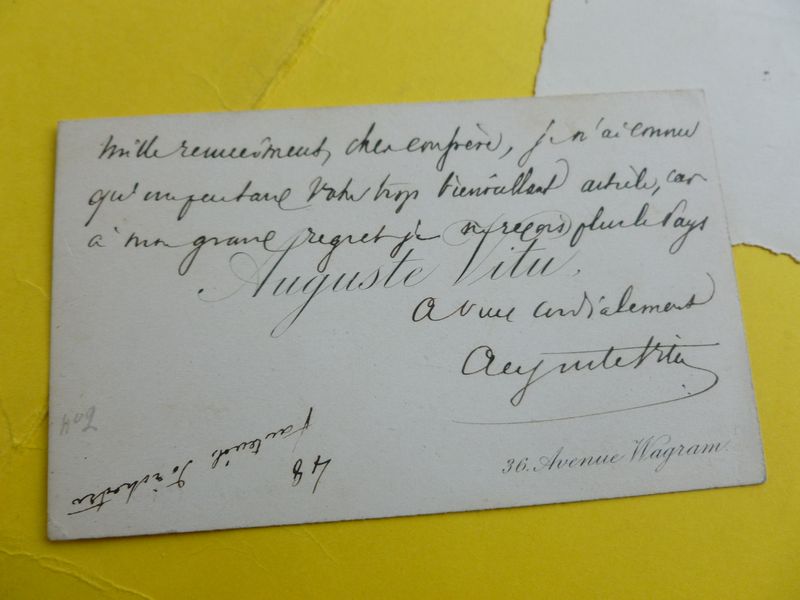 Mille remerciements, cher confrère, je n'ai connu
qu'un peu tard votre trop bienveillant article, car
à mon grand regret je ne reçois plus le Pays
Auguste Vitu.
A vous cordialement
Auguste Vitu
36. Avenue Wagram.
fauteuil d'orchestre
48